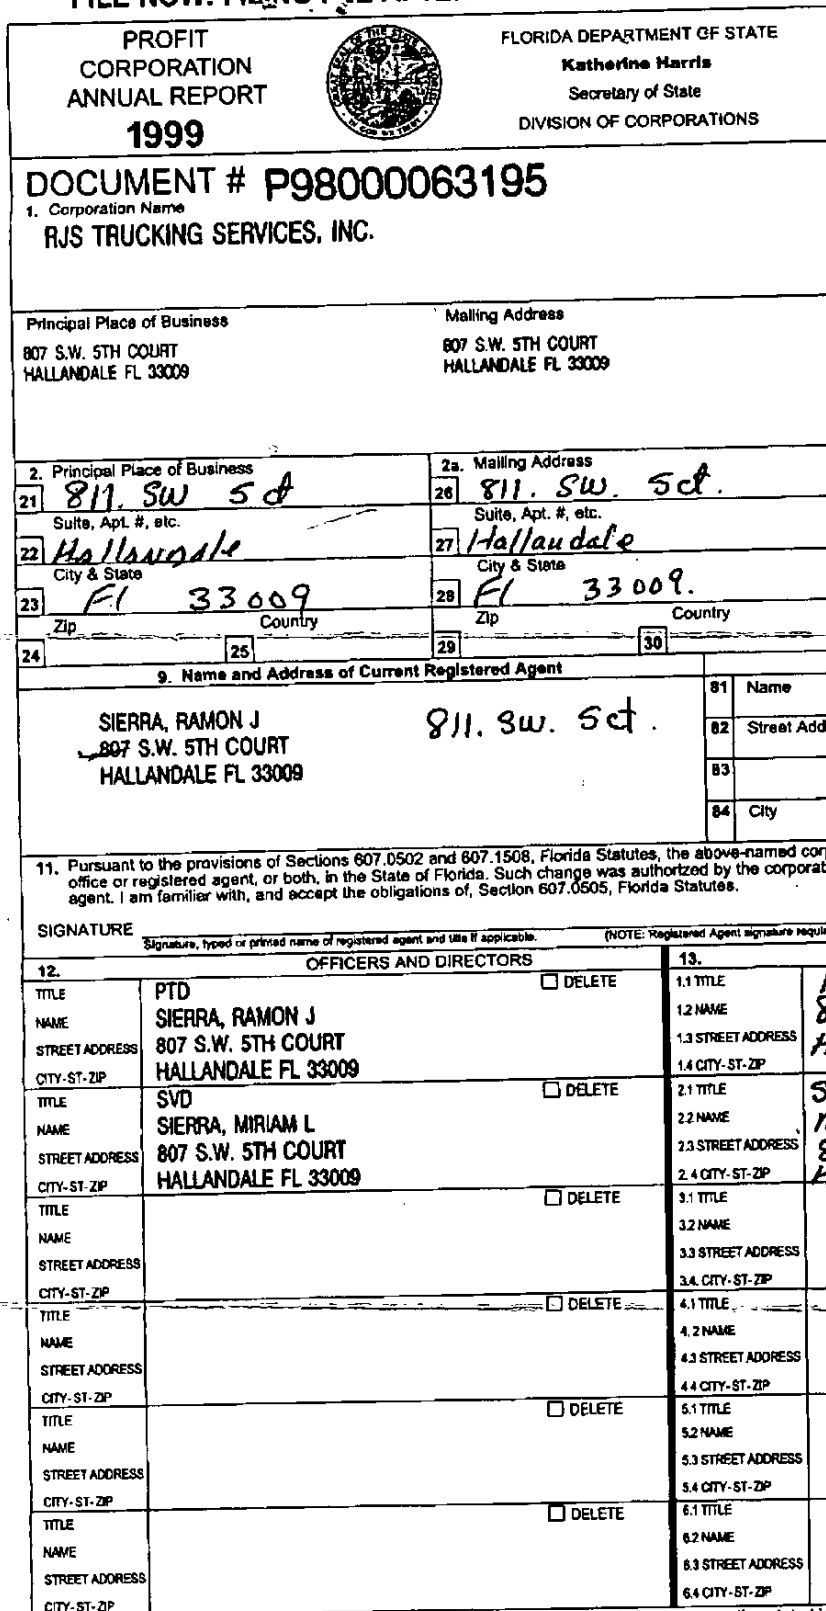 PROFIT
CORPORATION
ANNUAL REPORT
1999
FLORIDA DEPARTMENT OF STATE
Katherine Harris
Secretary of State
DIVISION OF CORPORATIONS
DOCUMENT # P98000063195
1. Corporation Name
RJS TRUCKING SERVICES, INC.
Principal Place of Business
807 S.W. 5TH COURT
HALLANDALE FL 33009
Mailing Address
807 S.W. 5TH COURT
HALLANDALE FL 33009
2. Principal Place of Business
21 811. SW 5 ct
Suite, Apt. #, etc.
22 Hallandale
City & State
23 Fl 33009
Zip Country
24 25
2a. Mailing Address
26 811. SW. 5ct.
Suite, Apt. #, etc.
27 Hallandale
City & State
28 Fl 33009.
Zip Country
29 30
9. Name and Address of Current Registered Agent
SIERRA, RAMON J
807 S.W. 5TH COURT
HALLANDALE FL 33009
811. SW. 5ct.
81 Name
82 Street Add
83
84 City
11. Pursuant to the provisions of Sections 607.0502 and 607.1508, Florida Statutes, the above-named cor
office or registered agent, or both, in the State of Florida. Such change was authorized by the corporat
agent. I am familiar with, and accept the obligations of, Section 607.0505, Florida Statutes.
SIGNATURE
Signature, typed or printed name of registered agent and title if applicable. (NOTE: Registered Agent signature requi
12. OFFICERS AND DIRECTORS 13.
TITLE PTD DELETE 1.1 TITLE
NAME SIERRA, RAMON J 1.2 NAME
STREET ADDRESS 807 S.W. 5TH COURT 1.3 STREET ADDRESS
CITY-ST-ZIP HALLANDALE FL 33009 1.4 CITY-ST-ZIP
TITLE SVD DELETE 2.1 TITLE
NAME SIERRA, MIRIAM L 2.2 NAME
STREET ADDRESS 807 S.W. 5TH COURT 2.3 STREET ADDRESS
CITY-ST-ZIP HALLANDALE FL 33009 2.4 CITY-ST-ZIP
TITLE DELETE 3.1 TITLE
NAME 3.2 NAME
STREET ADDRESS 3.3 STREET ADDRESS
CITY-ST-ZIP 3.4. CITY-ST-ZIP
TITLE DELETE 4.1 TITLE
NAME 4.2 NAME
STREET ADDRESS 4.3 STREET ADDRESS
CITY-ST-ZIP 4.4 CITY-ST-ZIP
TITLE DELETE 5.1 TITLE
NAME 5.2 NAME
STREET ADDRESS 5.3 STREET ADDRESS
CITY-ST-ZIP 5.4 CITY-ST-ZIP
TITLE DELETE 6.1 TITLE
NAME 6.2 NAME
STREET ADDRESS 6.3 STREET ADDRESS
CITY-ST-ZIP 6.4 CITY-ST-ZIP